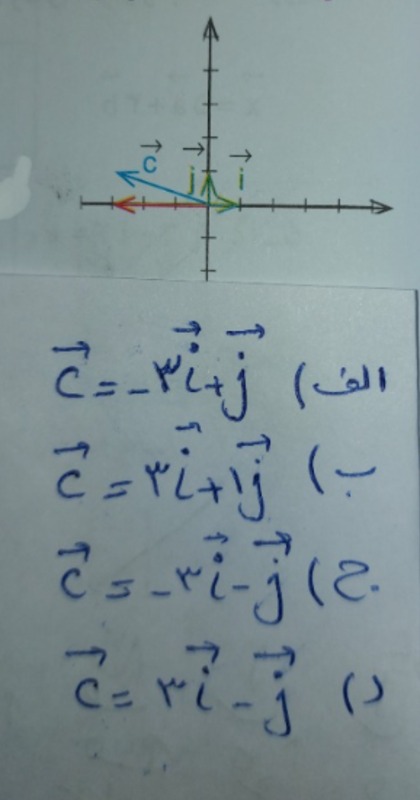 c j i
الف) c⃗ = -۳i⃗ + j⃗
ب) c⃗ = ۳i⃗ + ۱j⃗
ج) c⃗ = -۳i⃗ - j⃗
د) c⃗ = ۳i⃗ - j⃗